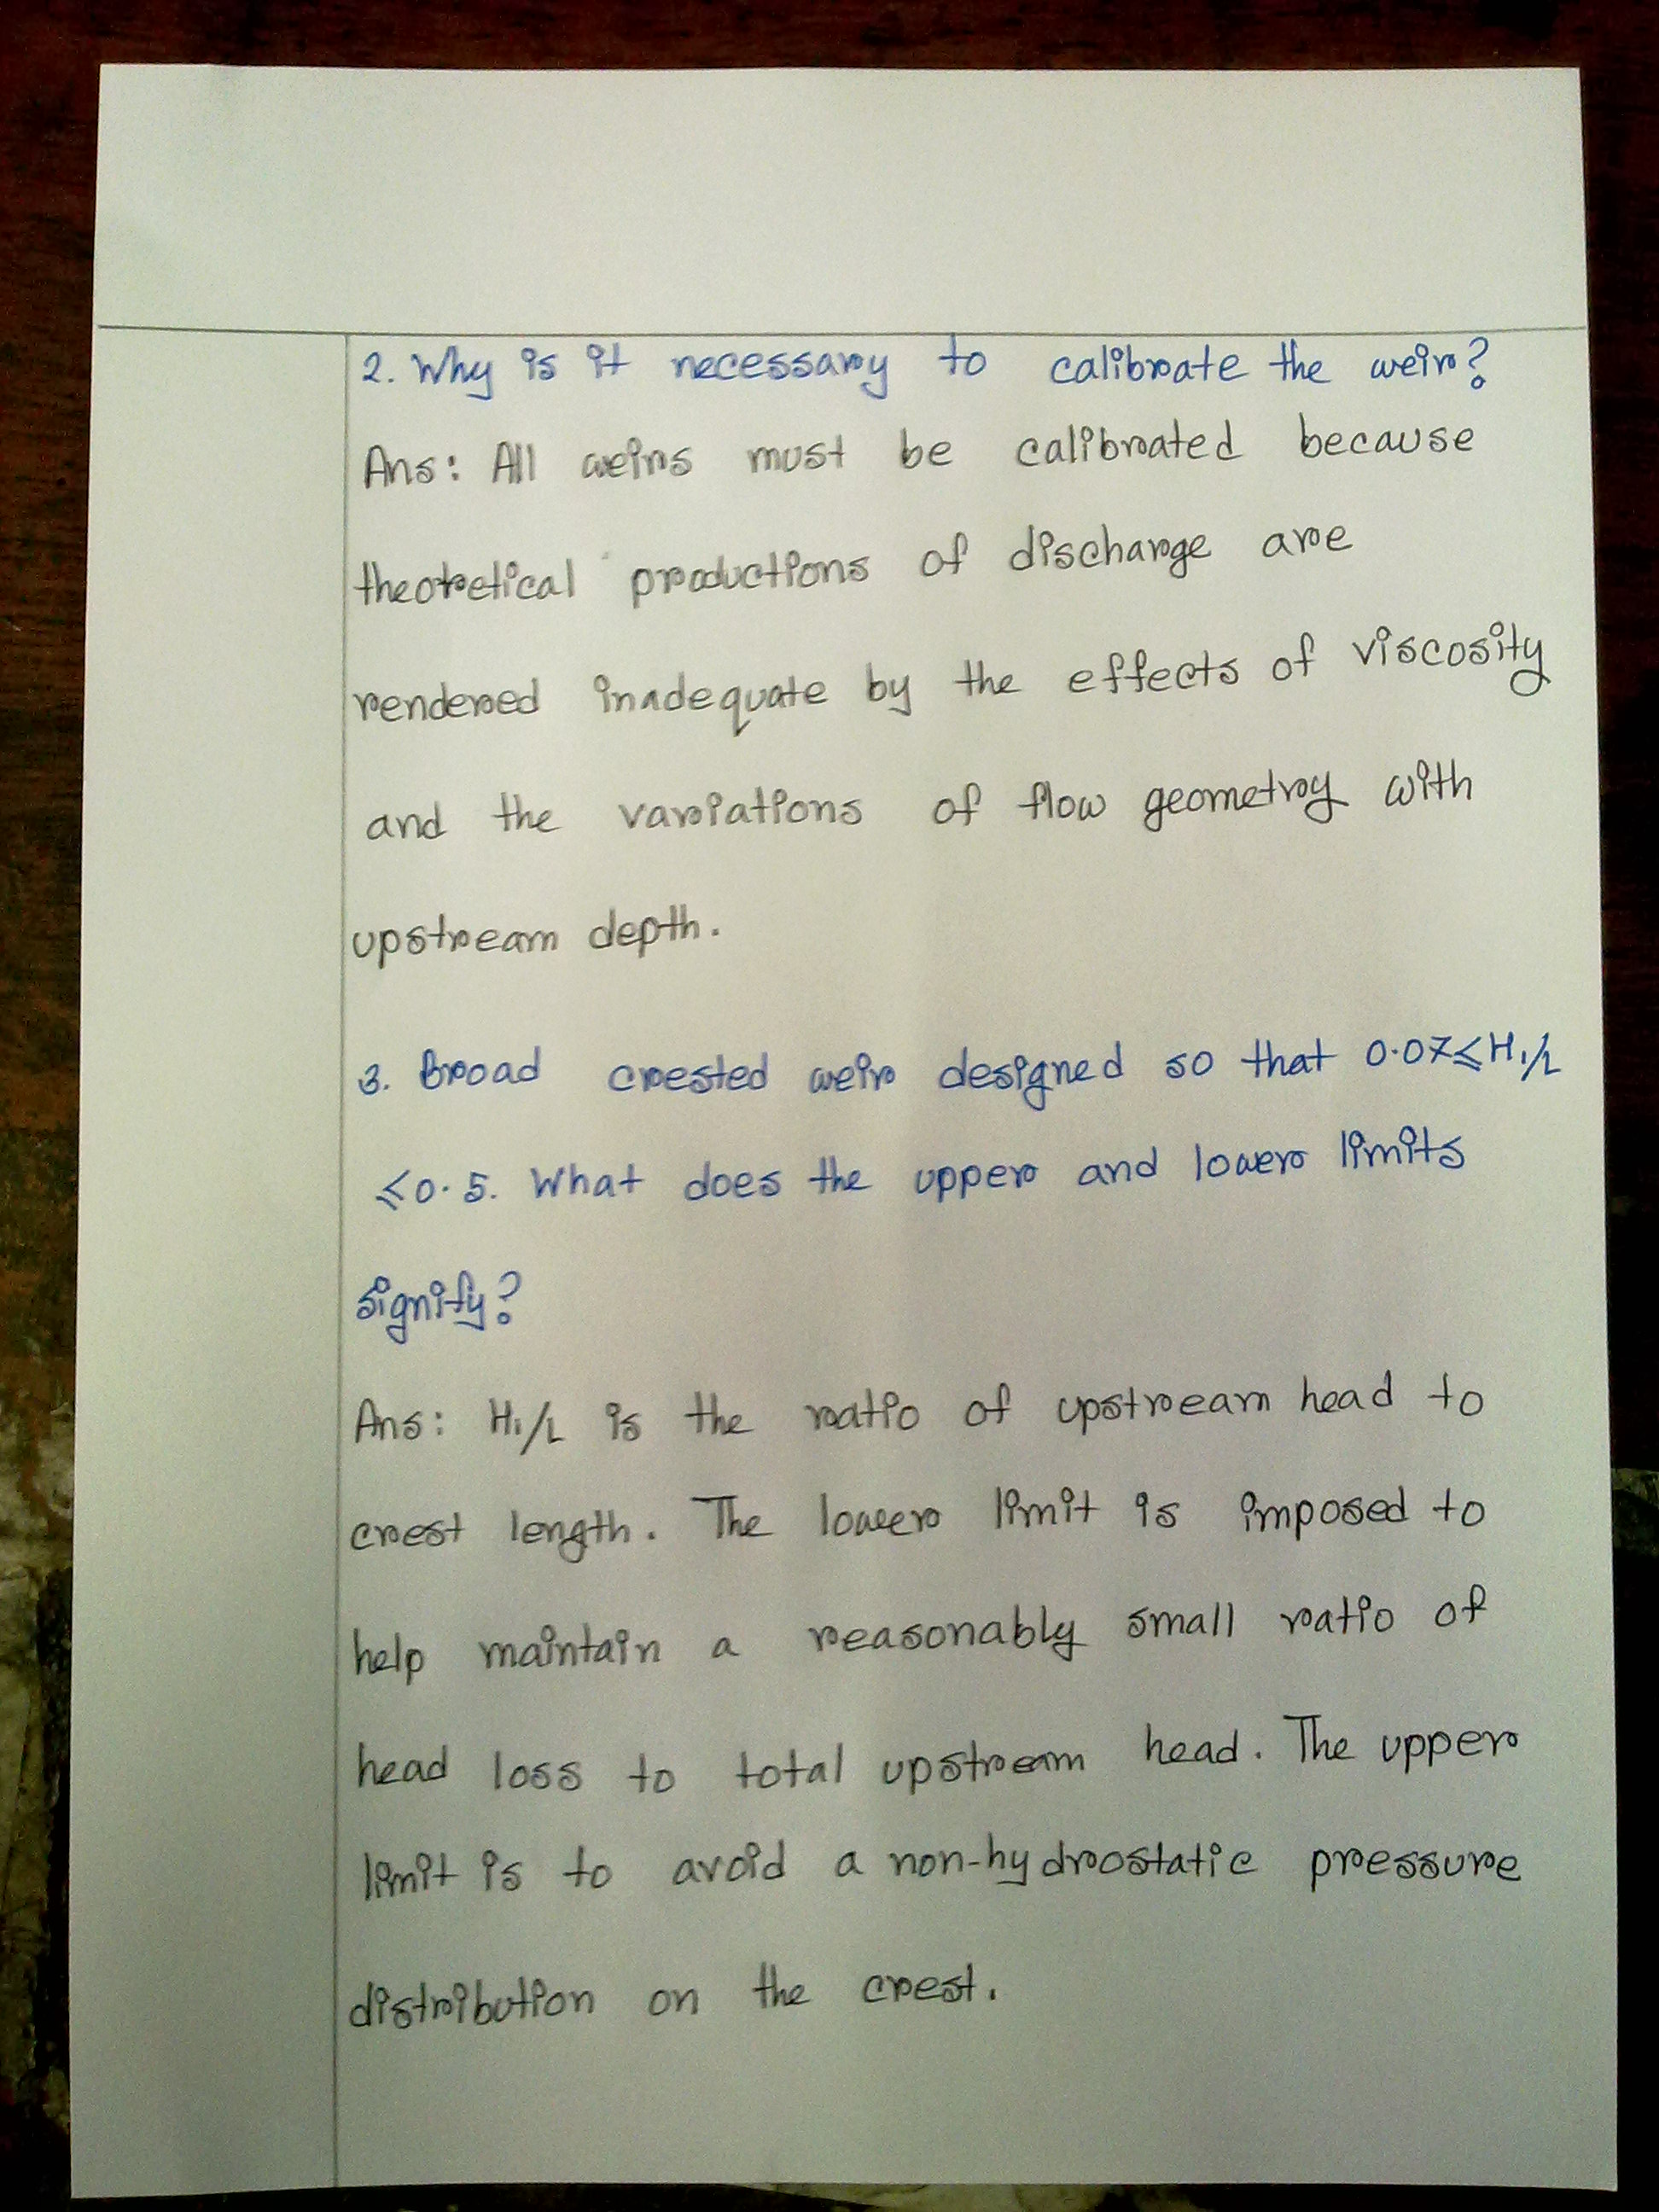 2. Why is it necessary to calibrate the weir?
Ans: All weirs must be calibrated because
theoretical productions of discharge are
rendered inadequate by the effects of viscosity
and the variations of flow geometry with
upstream depth.
3. Broad crested weir designed so that 0.07≤H₁/L
≤0.5. What does the upper and lower limits
signify?
Ans: H₁/L is the ratio of upstream head to
crest length. The lower limit is imposed to
help maintain a reasonably small ratio of
head loss to total upstream head. The upper
limit is to avoid a non-hydrostatic pressure
distribution on the crest.